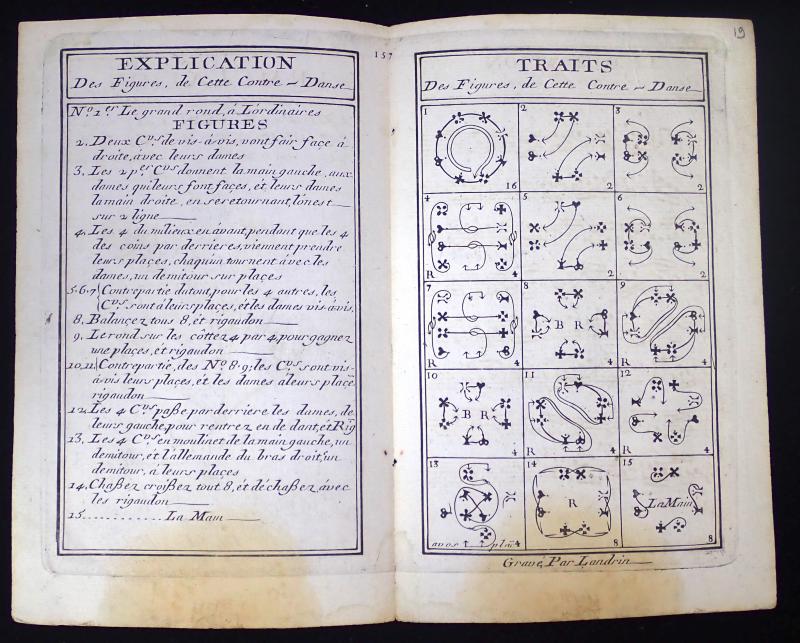 157
EXPLICATION
Des Figures, de Cette Contre-Danse
No. 1er Le grand rond, à Lordinaires
FIGURES
2. Deux Cvs. de vis-à-vis, vont fair façe à
droite, avec leurs dames
3. Les 2 pers Cvs donnent la main gauche, aux
dames qui leurs font façes, ét leurs dames
la main droite, en se retournant, lonest
sur 2 ligne
4. Les 4 du milieux en avant, pendant que les 4
des coins par derrieres, viennent prendre
leurs plaçes, chaquin tournent avec les
dames, un demitour sur plaçes
5.6.7 Contrepartie du tout, pour les 4 autres, les
Cvs. sont à leurs plaçes, ét les dames vis-à-vis,
8. Balançez tous 8, ét rigaudon
9. Le rond sur les côttez 4 par 4, pour gagnez
une plaçes, ét rigaudon
10, 11, Contrepartie, des No. 8.9; les Cvs. sont vis-
à-vis leurs plaçes, ét les dames à leurs plaçe
rigaudon
12. Les 4 Cvs paße par derriere les dames, de
leurs gauche, pour rentrez en de dant, ét Rig
13. Les 4 Cvs. en moulinet de la main gauche, un
demitour, ét l'allemande du bras droit, un
demitour, à leurs plaçes
14. Chaßez croißez tout 8, ét déchaßez avec
les rigaudon
15. ............ La Main
19
TRAITS
Des Figures, de Cette Contre-Danse
1 2 3
16 2 2
4 5 6
R 4 2 2
7 8 9
R 4 B R 4 R 4
10 11 12
B R 4 R 4 R 4
13 14 15
R La Main
4 8 8
Gravé Par Landrin